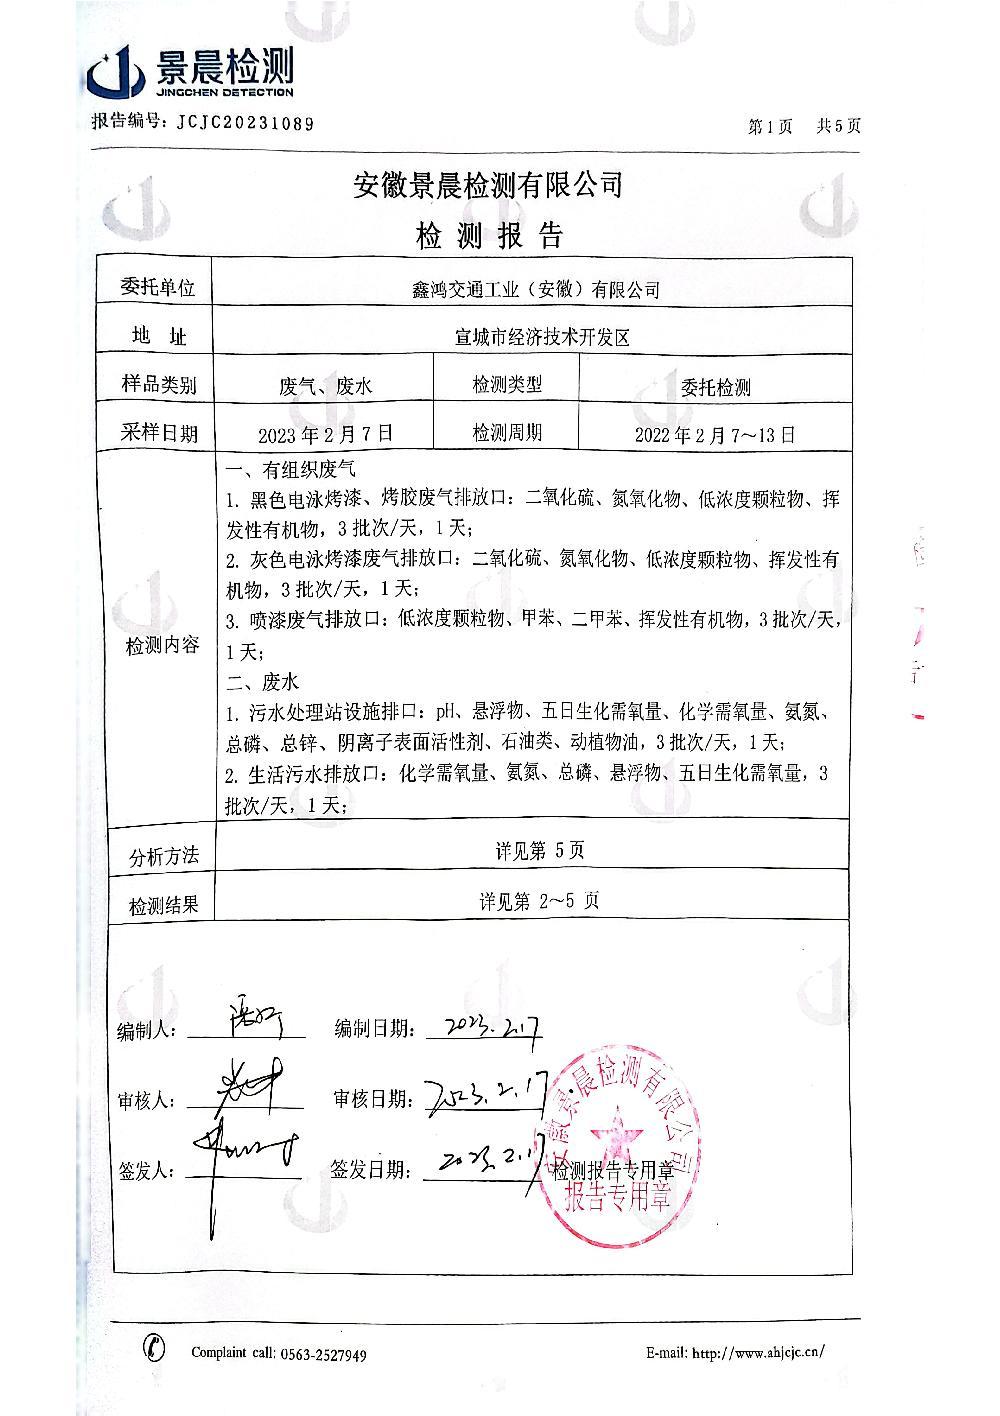 景晨检测
JINGCHEN DETECTION
报告编号：JCJC20231089
第1页 共5页
安徽景晨检测有限公司
检 测 报 告
委托单位 鑫鸿交通工业（安徽）有限公司
地 址 宣城市经济技术开发区
样品类别 废气、废水 检测类型 委托检测
采样日期 2023年2月7日 检测周期 2022年2月7～13日
检测内容
一、有组织废气
1. 黑色电泳烤漆、烤胶废气排放口：二氧化硫、氮氧化物、低浓度颗粒物、挥
发性有机物，3批次/天，1天；
2. 灰色电泳烤漆废气排放口：二氧化硫、氮氧化物、低浓度颗粒物、挥发性有
机物，3批次/天，1天；
3. 喷漆废气排放口：低浓度颗粒物、甲苯、二甲苯、挥发性有机物，3批次/天，
1天；
二、废水
1. 污水处理站设施排口：pH、悬浮物、五日生化需氧量、化学需氧量、氨氮、
总磷、总锌、阴离子表面活性剂、石油类、动植物油，3批次/天，1天；
2. 生活污水排放口：化学需氧量、氨氮、总磷、悬浮物、五日生化需氧量，3
批次/天，1天；
分析方法 详见第 5页
检测结果 详见第 2～5 页
编制人： 编制日期：2023.2.17
审核人： 审核日期：2023.2.17
签发人： 签发日期：2023.2.17
安徽景晨检测有限公司
检测报告专用章
报告专用章
Complaint call: 0563-2527949
E-mail: http://www.ahjcjc.cn/